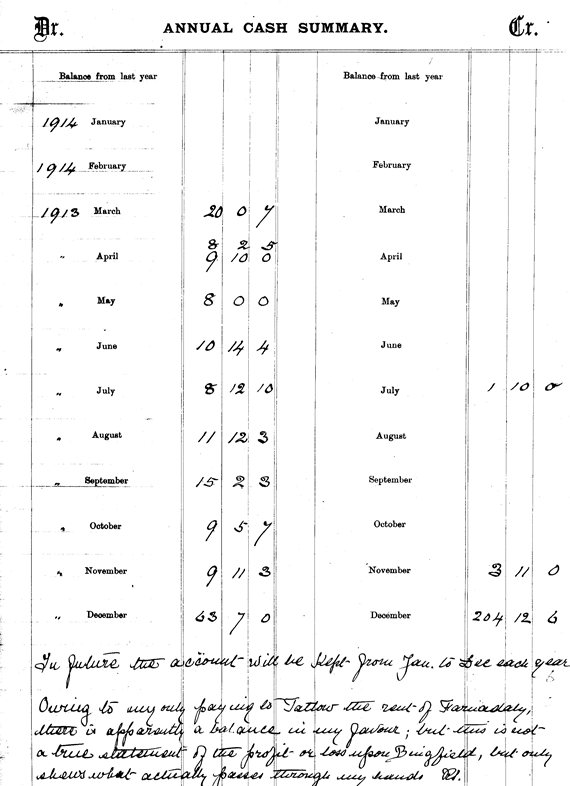 Dr. ANNUAL CASH SUMMARY. Cr.
Balance from last year Balance from last year
1914 January January
1914 February February
1913 March 20 0 7 March
8 2 5
" April 9 10 0 April
" May 8 0 0 May
" June 10 14 4 June
" July 8 12 10 July 1 10 0
" August 11 12 3 August
" September 15 2 3 September
" October 9 5 7 October
" November 9 11 3 November 3 11 0
" December 63 7 0 December 204 12 6
In future the account will be kept from Jan. to Dec each year
Owing to my only paying to Tatlow the rent of Farnadaly,
there is apparently a balance in my favour; but this is not
a true statement of the profit or loss upon Bingfield, but only
shews what actually passes through my hands